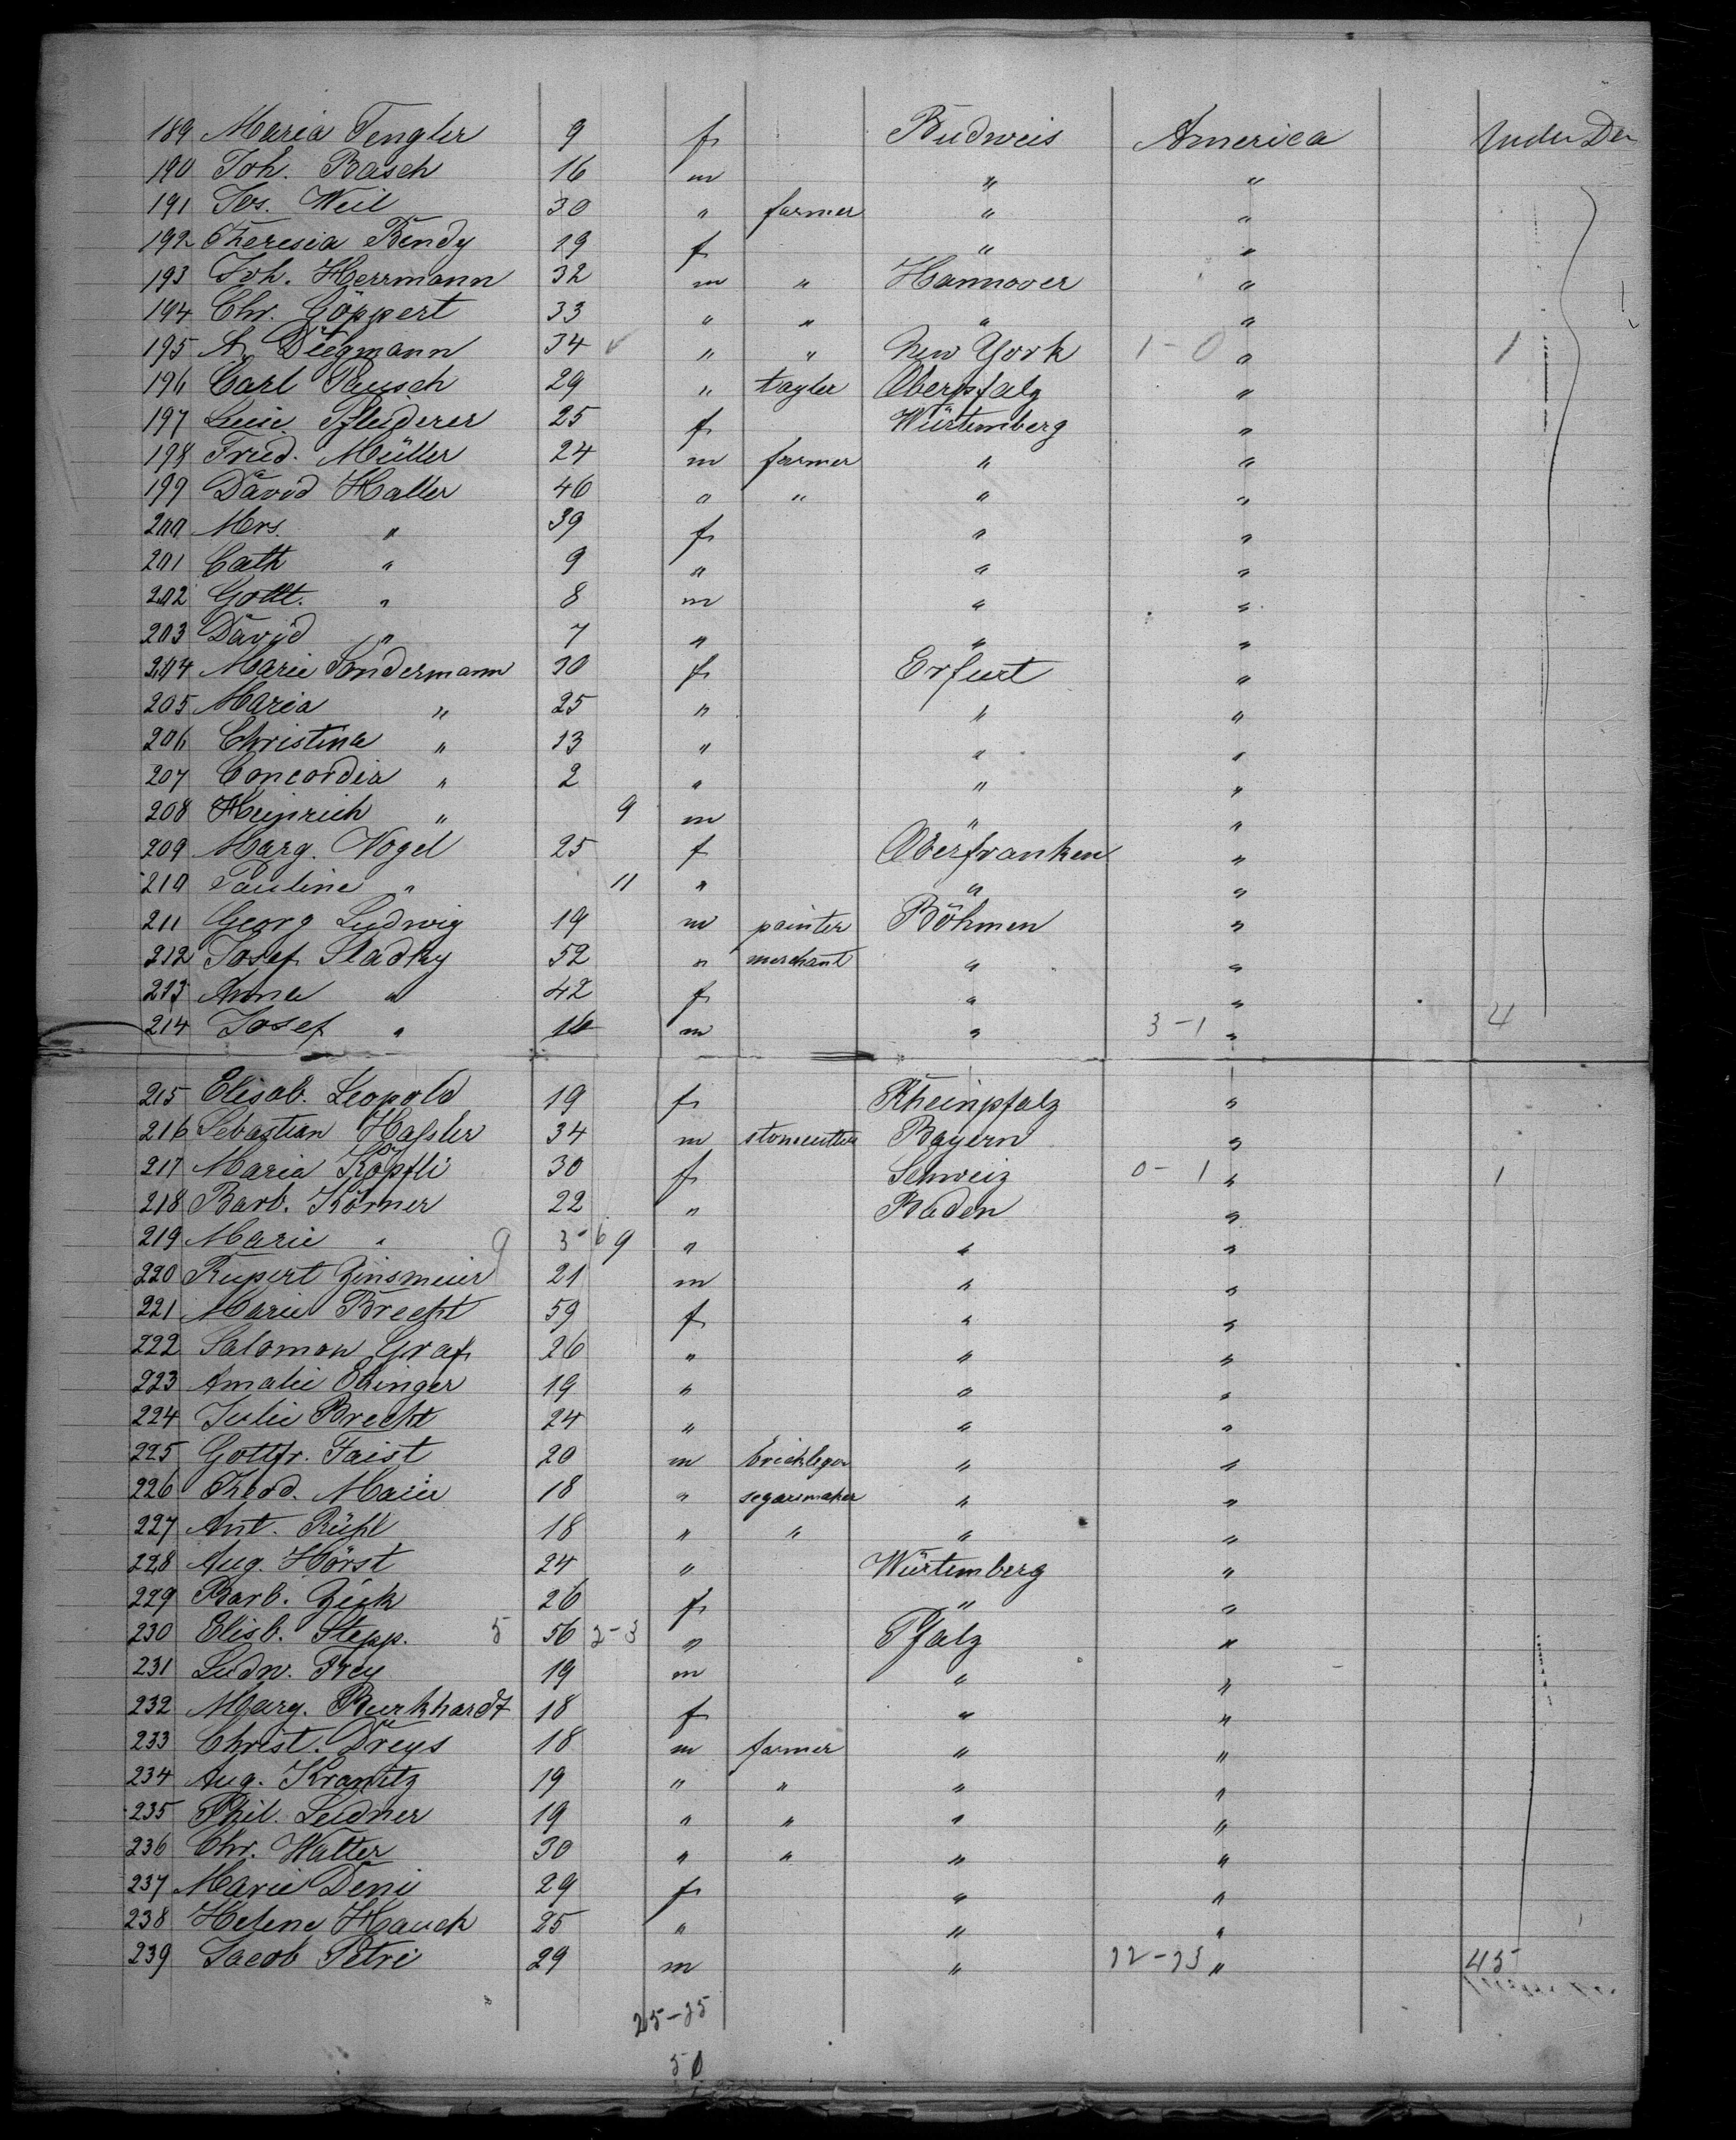 189 Maria Tengler 9 f Budweis America Under Den
190 Joh. Basch 16 m " "
191 Jos. Weil 30 " farmer " "
192 Theresia Bendy 19 f " "
193 Joh. Herrmann 32 m " Hannover "
194 Chr. Göppert 33 " " " "
195 A. Diegmann 34 " " New York 1-0 " 1
196 Carl Pausch 29 " tayler Oberpfalz "
197 Luise Pfleiderer 25 f Würtemberg "
198 Fried. Müller 24 m farmer " "
199 David Haller 46 " " " "
200 Mrs. " 39 f " "
201 Cath " 9 " " "
202 Gottl. " 8 m " "
203 David " 7 " " "
204 Marie Sondermann 30 f Erfurt "
205 Maria " 25 " " "
206 Christina " 13 " " "
207 Concordia " 2 " " "
208 Heinrich " 9 m " "
209 Marg. Vogel 25 f Oberfranken "
210 Pauline " 11 " " "
211 Georg Ludwig 19 m painter Böhmen "
212 Josef Sladky 52 " merchant " "
213 Anna " 42 f " "
214 Josef " 16 m " 3-1 " 4
215 Elisab. Leopold 19 f Rheinpfalz "
216 Sebastian Haßler 34 m stonecutter Bayern "
217 Maria Köpfli 30 f Schweiz 0-1 " 1
218 Barb. Körner 22 " Baden "
219 Marie " 9 3-6 9 " " "
220 Rupert Zinsmeier 21 m " "
221 Marie Brecht 59 f " "
222 Salomon Graf 26 " " "
223 Amalie Ettinger 19 " " "
224 Julie Brecht 24 " " "
225 Gottfr. Faist 20 m brickleger " "
226 Theod. Maier 18 " segarmaker " "
227 Ant. Rühl 18 " " " "
228 Aug. Hörst 24 " Würtemberg "
229 Barb. Zick 26 f " "
230 Elisb. Stepp. 5 56 2-3 " Pfalz "
231 Ludw. Frey 19 m " "
232 Marg. Burkhardt 18 f " "
233 Christ. Dreys 18 m farmer " "
234 Aug. Kranitz 19 " " " "
235 Phil. Leidner 19 " " " "
236 Chr. Walter 30 " " " "
237 Marie Deni 29 f " "
238 Helene Hauck 25 " " "
239 Jacob Petri 29 m " 22-23 " 45
25-25
50